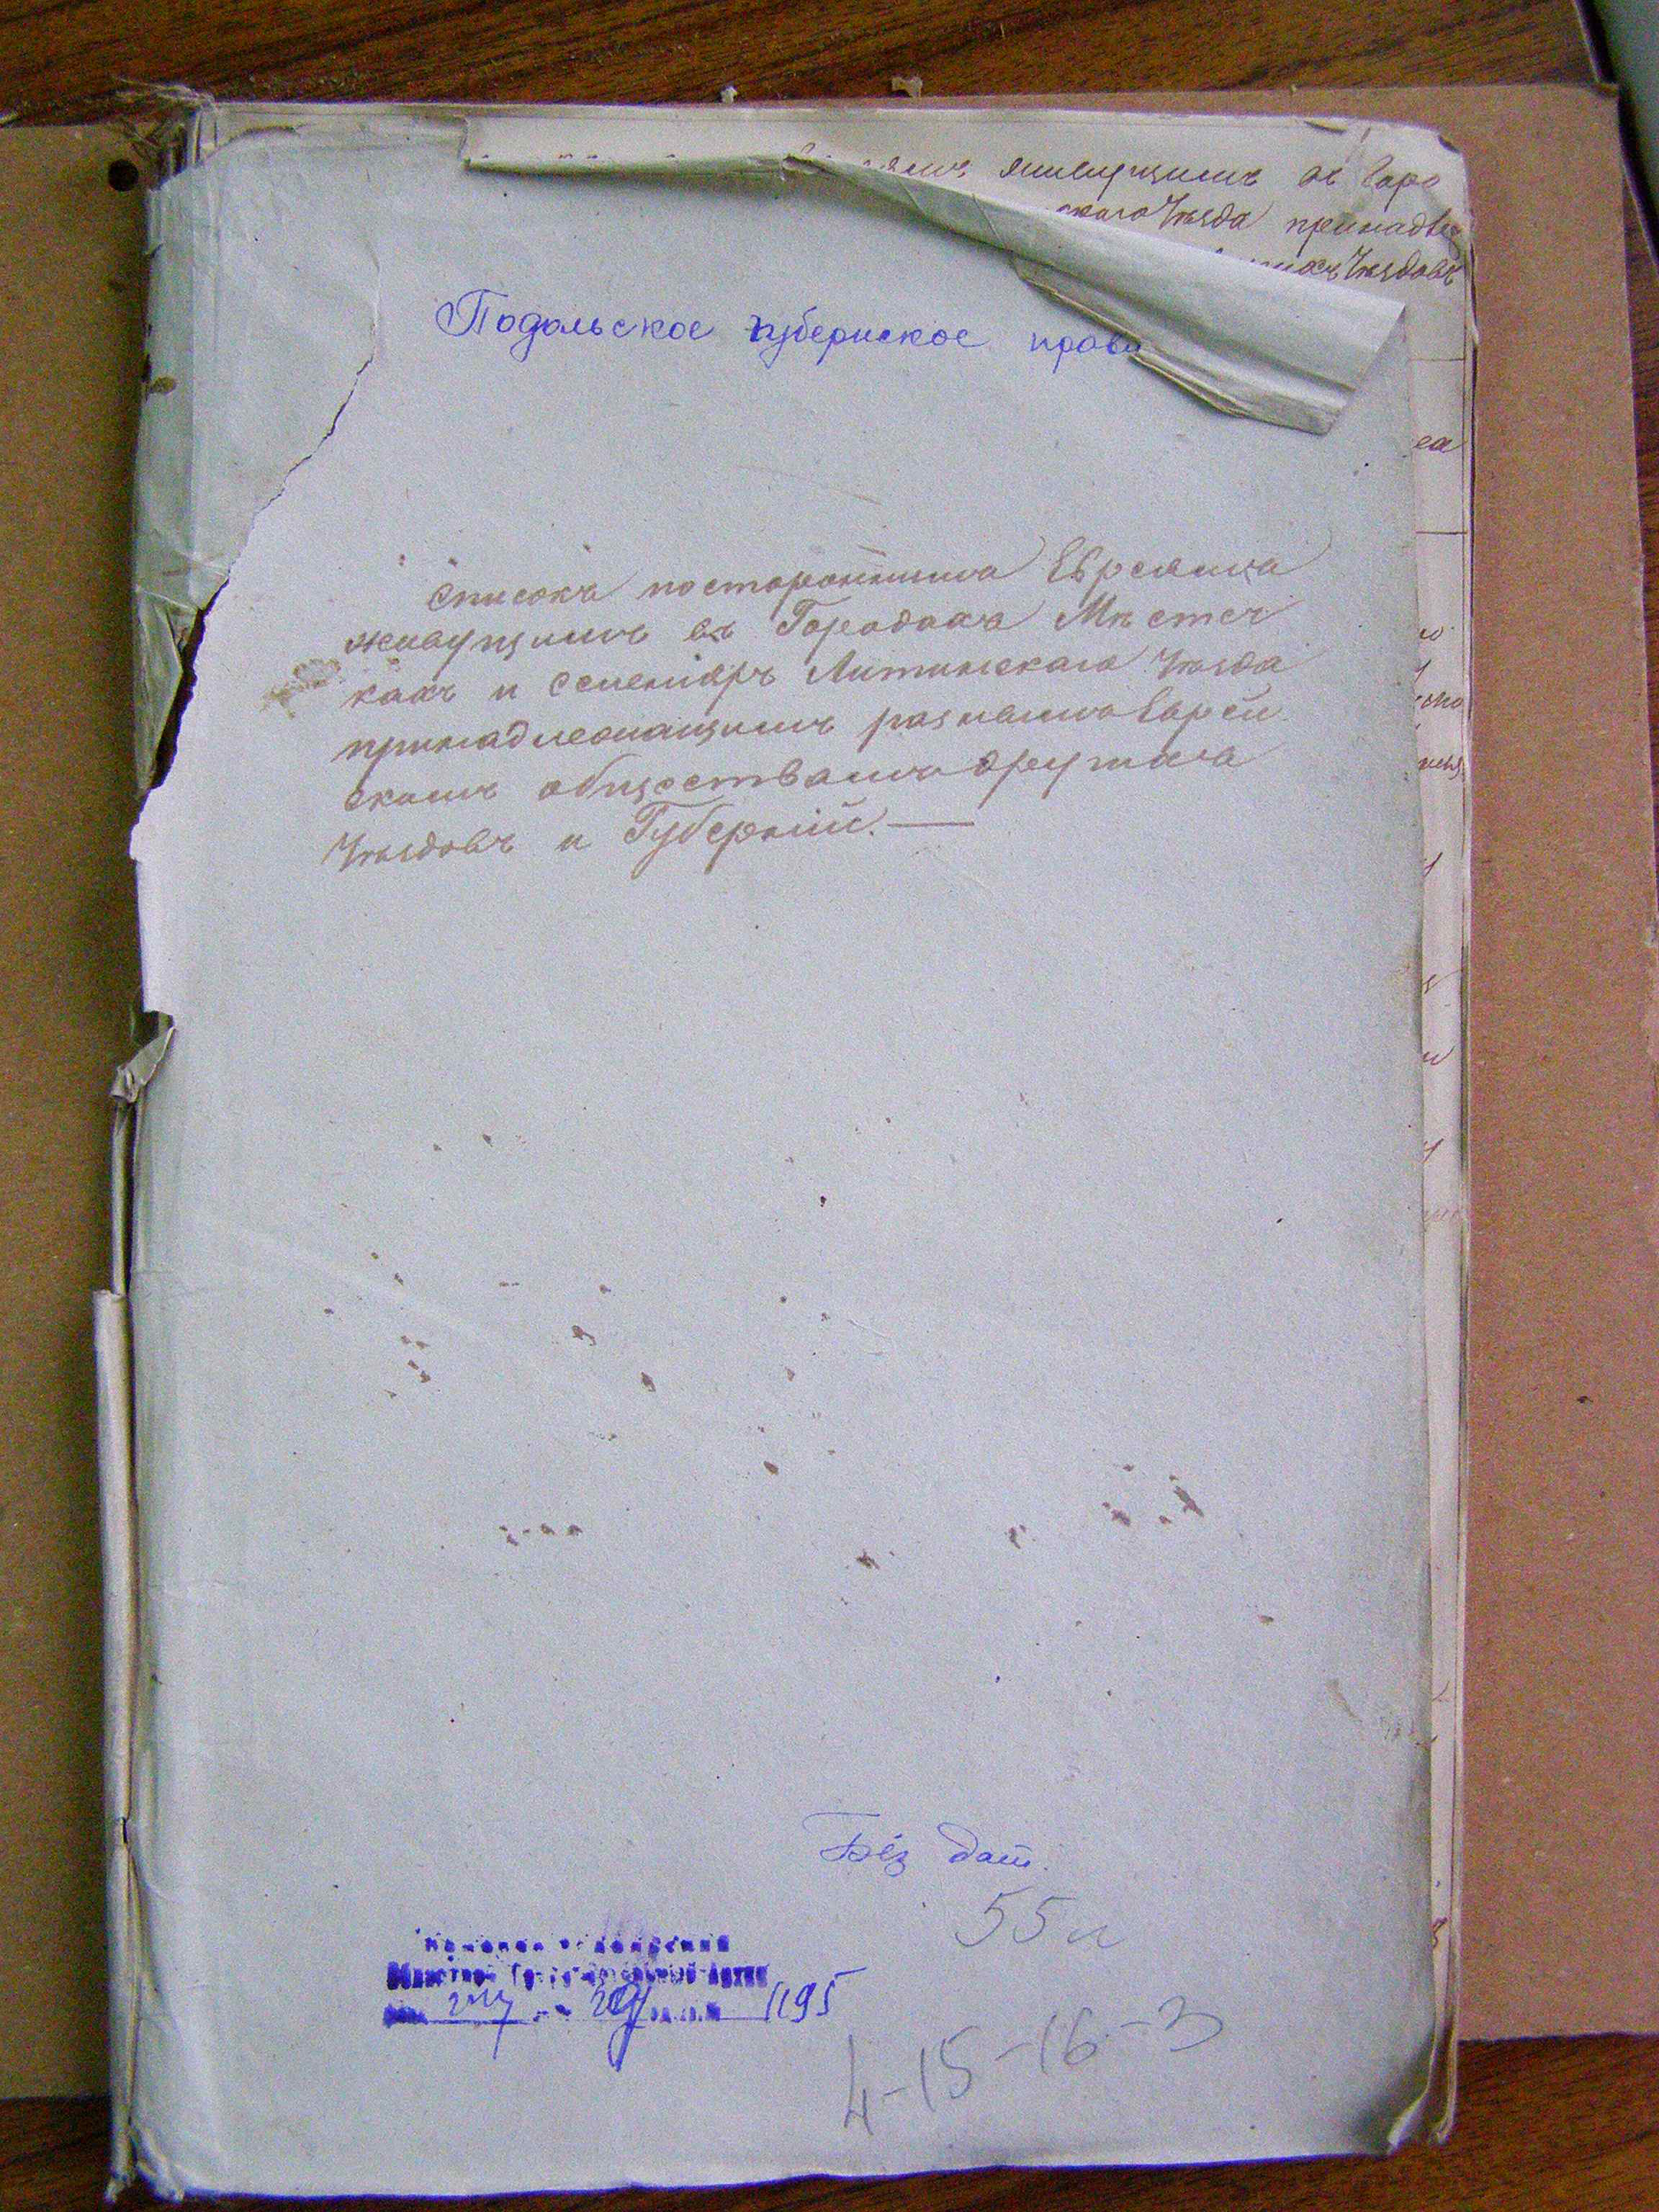 живущимъ въ Горо
скаго Уѣзда принадле
Уѣздовъ
Подольское губернское прав
Списокъ постороннимъ Евреямъ
живущимъ въ Городахъ Мѣстеч
кахъ и селеніяхъ Литинскаго Уѣзда
принадлежащимъ разнымъ Еврей
скимъ обществамъ другихъ
Уѣздовъ и Губерній.—
Без дат.
55 л
227 1195
4-15-16-3